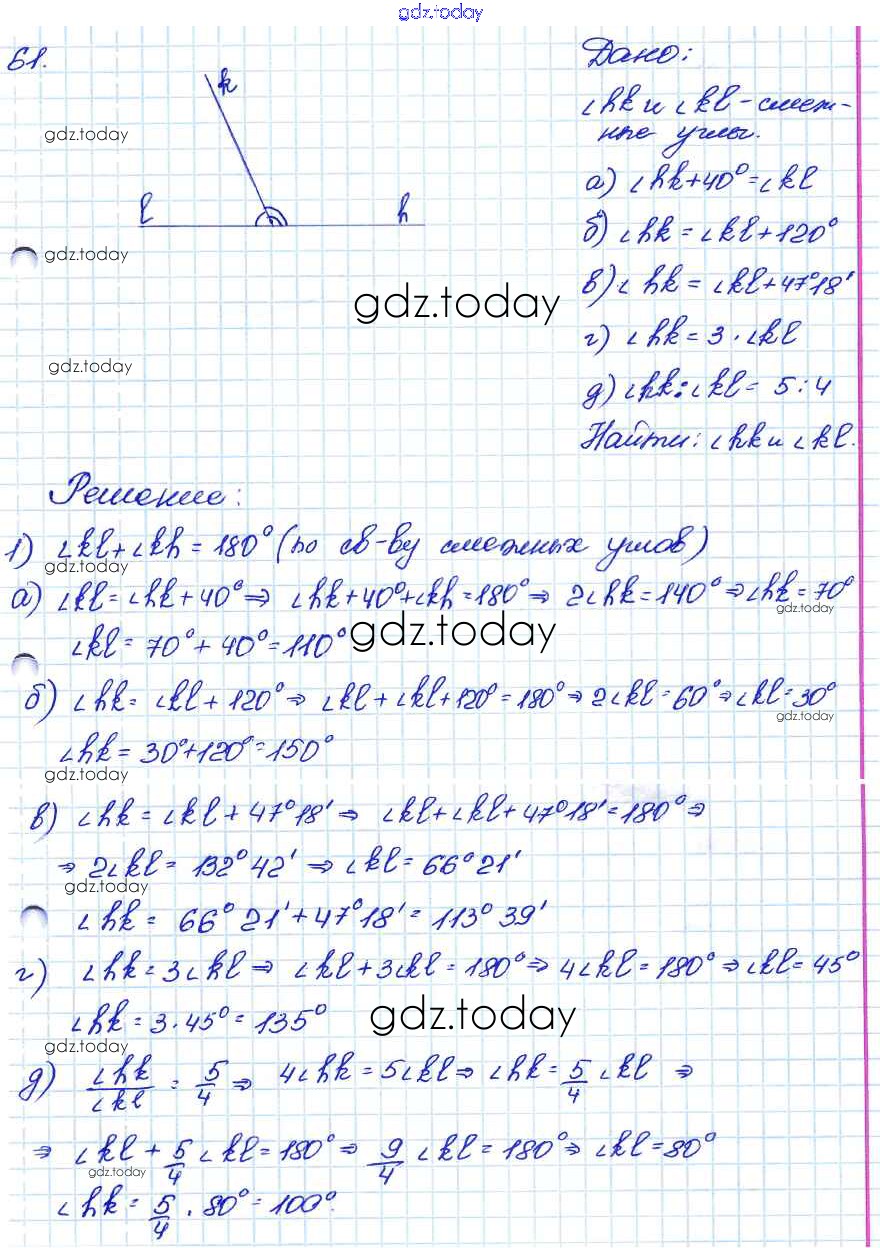 gdz.today
61.
k
l
h
gdz.today
gdz.today
gdz.today
gdz.today
Дано:
∠hk и ∠kl - смеж-
ные углы.
а) ∠hk+40°=∠kl
б) ∠hk = ∠kl+120°
в) ∠hk = ∠kl+47°18'
г) ∠hk = 3·∠kl
д) ∠hk:∠kl = 5:4
Найти: ∠hk и ∠kl.
Решение:
1) ∠kl+∠kh = 180° (по св-ву смежных углов)
gdz.today
а) ∠kl = ∠hk+40° ⇒ ∠hk+40°+∠kh=180° ⇒ 2∠hk=140° ⇒ ∠hk=70°
gdz.today
∠kl = 70°+40°=110°
gdz.today
б) ∠hk = ∠kl+120° ⇒ ∠kl+∠kl+120°=180° ⇒ 2∠kl=60° ⇒ ∠kl=30°
gdz.today
∠hk = 30°+120°=150°
gdz.today
в) ∠hk = ∠kl+47°18' ⇒ ∠kl+∠kl+47°18'=180° ⇒
⇒ 2∠kl = 132°42' ⇒ ∠kl = 66°21'
gdz.today
∠hk = 66°21'+47°18' = 113°39'
г) ∠hk = 3∠kl ⇒ ∠kl+3∠kl = 180° ⇒ 4∠kl = 180° ⇒ ∠kl = 45°
∠hk = 3·45° = 135°
gdz.today
gdz.today
д) ∠hk/∠kl = 5/4 ⇒ 4∠hk = 5∠kl ⇒ ∠hk = 5/4 ∠kl ⇒
⇒ ∠kl + 5/4 ∠kl = 180° ⇒ 9/4 ∠kl = 180° ⇒ ∠kl = 80°
gdz.today
∠hk = 5/4 · 80° = 100°.